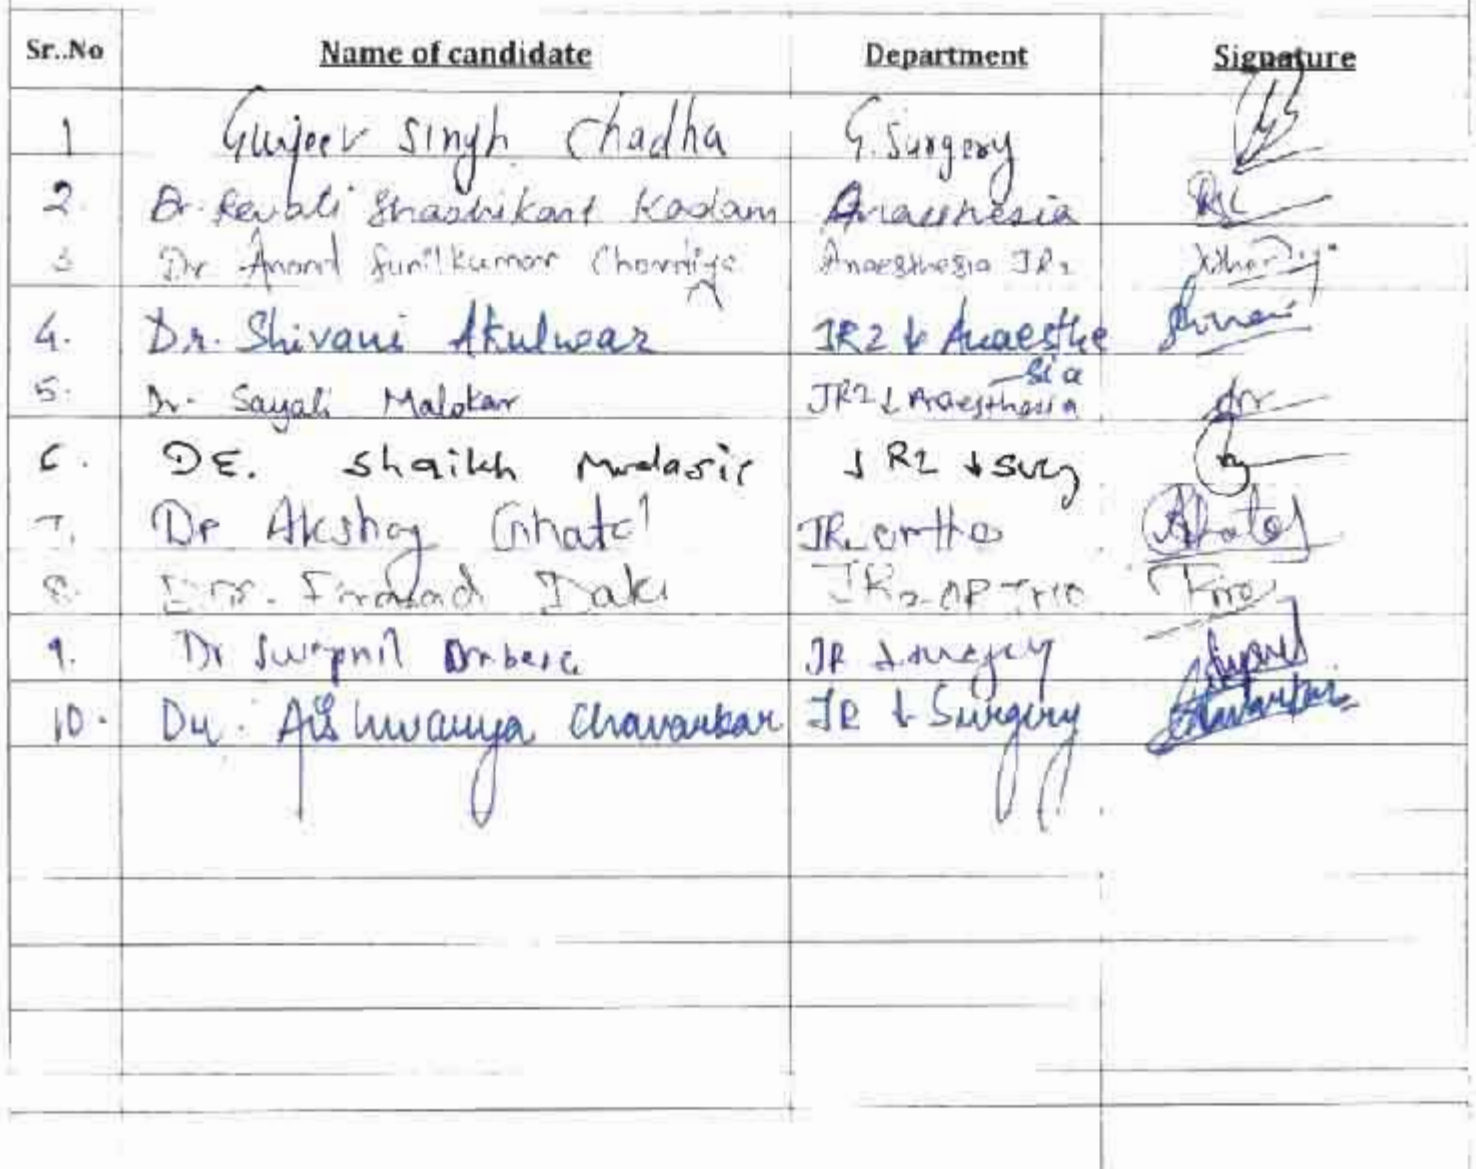 Sr..No Name of candidate Department Signature
1 Gurjeev Singh Chadha G. Surgery
2. Dr. Revati Shashikant Kadam Anaesthesia
3 Dr Anand Sunilkumar Chordiya Anaesthesia JR2
4. Dr. Shivani Akulwar JR2 ↓ Anaesthe
-sia
5. Dr. Sayali Malokar JR2 ↓ Anaesthesia
6. Dr. Shaikh Mudasir JR2 ↓ Surg
7. Dr Akshay JR ortho
8. JR2
9. Dr Swapnil JR ↓ Surgery
10. Dr. Aishwarya Chavarkar JR ↓ Surgery Chavarkar